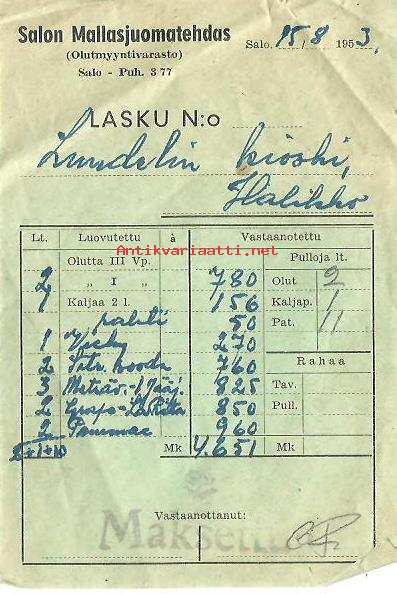 Salon Mallasjuomatehdas
(Olutmyyntivarasto)
Salo - Puh. 3 77
Salo. 15/8 1953.
LASKU N:o
Lundelin kioski,
Halikko
Antikvariaatti.net
Lt. Luovutettu à Vastaanotettu
Olutta III Vp. Pulloja lt.
2 „ I „ 780 Olut 2
1 Kaljaa 2 l. 156 Kaljap. 1
rahti 50 Pat. 11
1 Vichy 270
2 Sitr. sooda 760 Rahaa
3 825 Tav.
2 Grape- 850 Pull.
2 Pommac 960
2+1+10 Mk 4.651 Mk
Vastaanottanut:
Maksettu